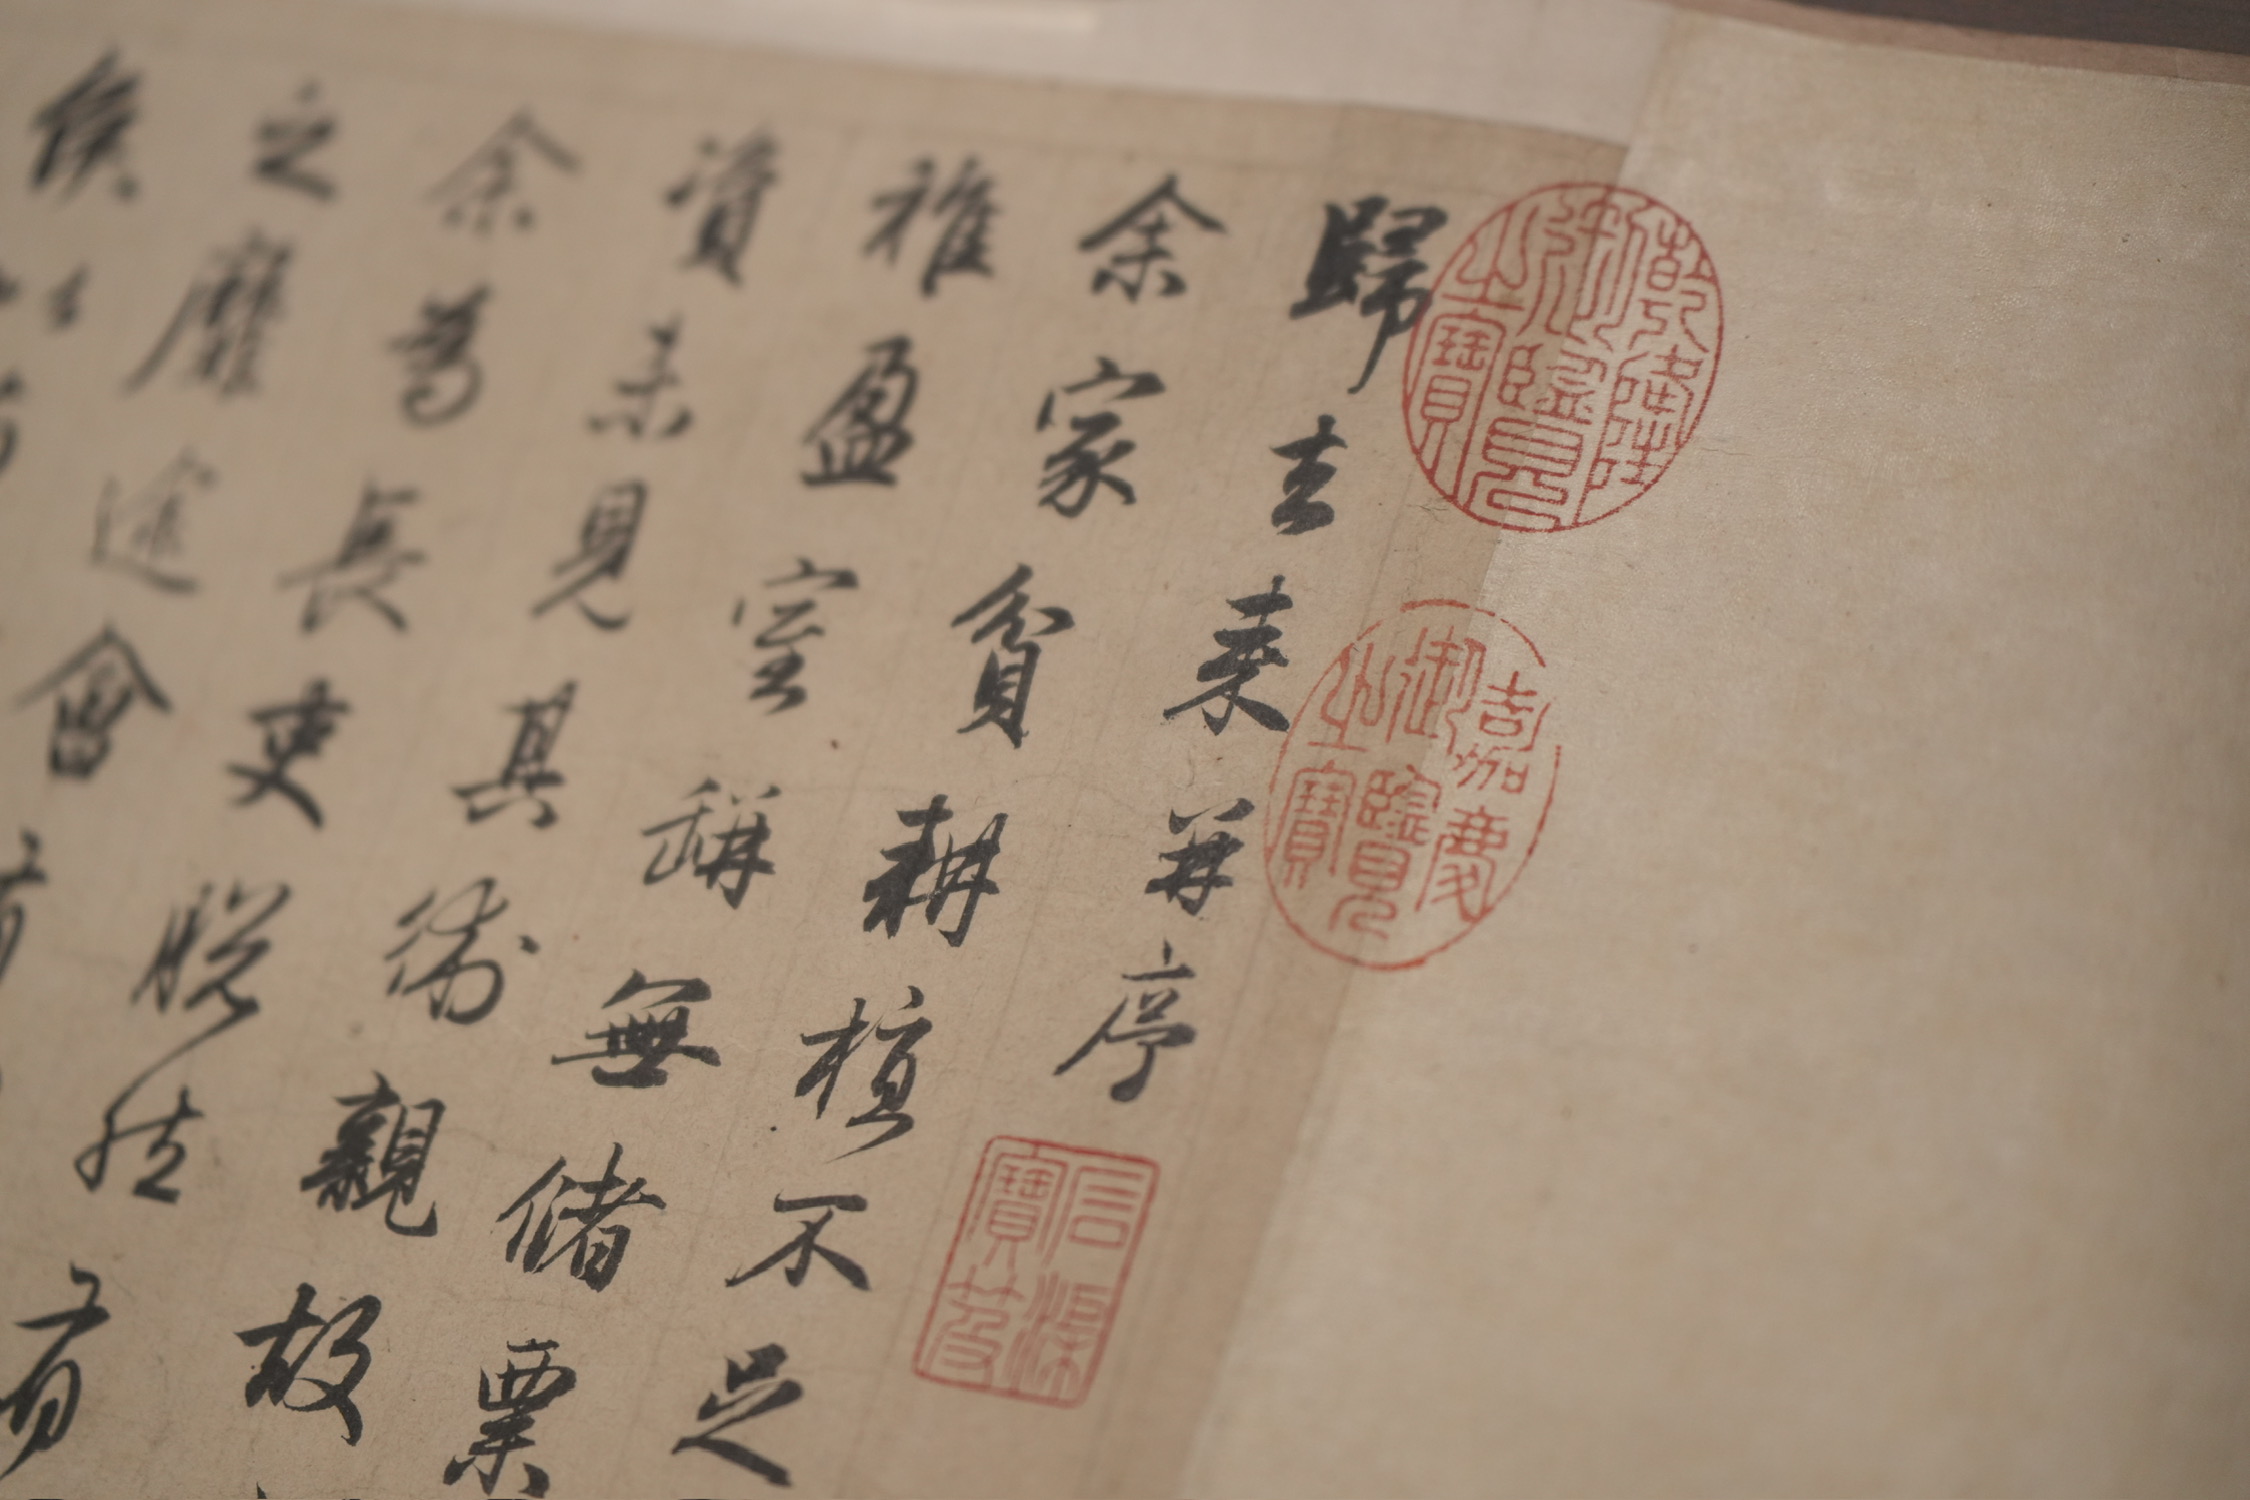 乾隆御覽之寶
嘉慶御覽之寶
歸去來并序
石渠寶笈
余家貧耕植不足
稚盈室缾無儲粟
資未見其術親故
余為長吏脫然有
之靡途會有
侯以